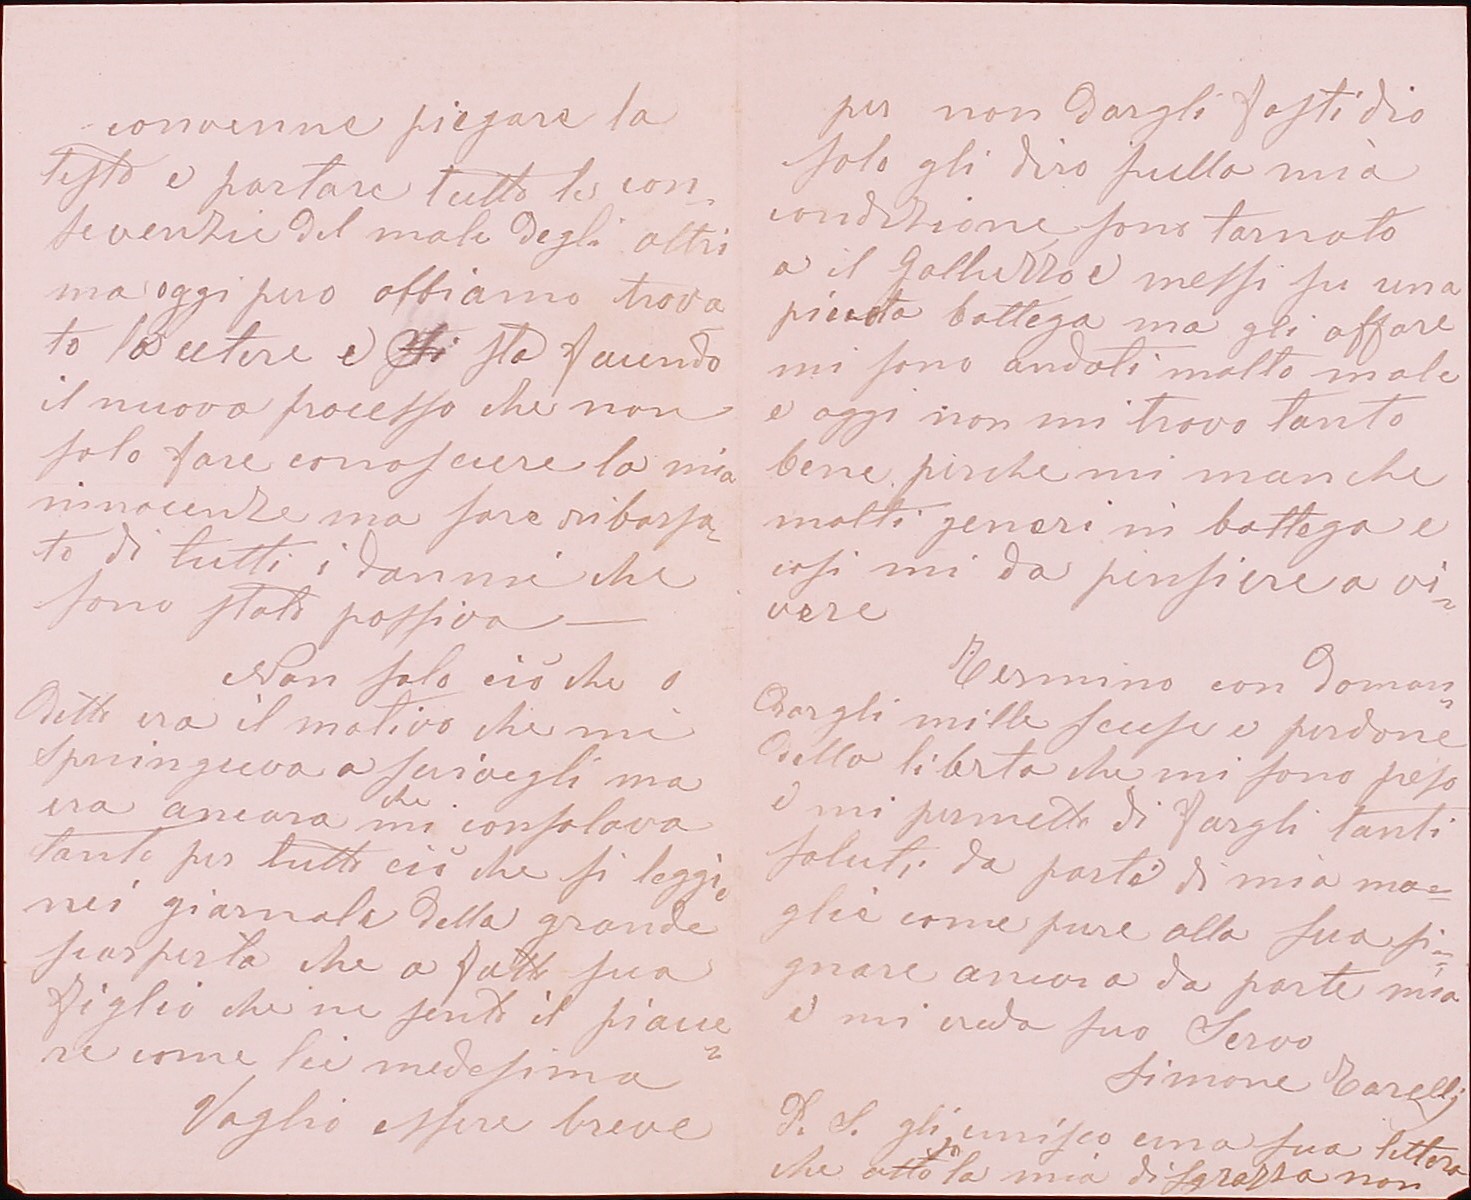 convenne piegare la
testa e portare tutte le con-
sevenzie del male degli altri
ma oggi pero abbiamo trova
to la cetere e sta facendo
il nuovo processo che non
solo fare conosciere la mia
innocenze ma sare riborsa-
to di tutti i danni che
sono stato passiva —
Non solo ciò che o
detto era il motivo che mi
spuingueva a scrivegli ma
era ancora che mi consolava
tanto per tutto ciò che si leggie
nei giornale della grande
scosperta che a fatto sua
figlio che ne sento il piace-
re come lei medesima
Voglio essere breve
per non dargli fastidio
solo gli diro sulla mia
condizione sono tornato
a il Galluzzo e messi su una
piccola bottega ma gli affare
mi sono andati molto male
e oggi non mi trovo tanto
bene perche mi manche
molti generi in bottega e
cosi mi da pensiere a vi-
vere
Termino con doman-
dargli mille scuse e perdone
della liberta che mi sono peso
e mi permetto di fargli tanti
saluti da parte di mia mo-
glie come pure alla sua si-
gnore ancora da parte mia
e mi creda suo Servo
Simone
P. S. gli unisco una sua lettera
che la mia disgrazza non